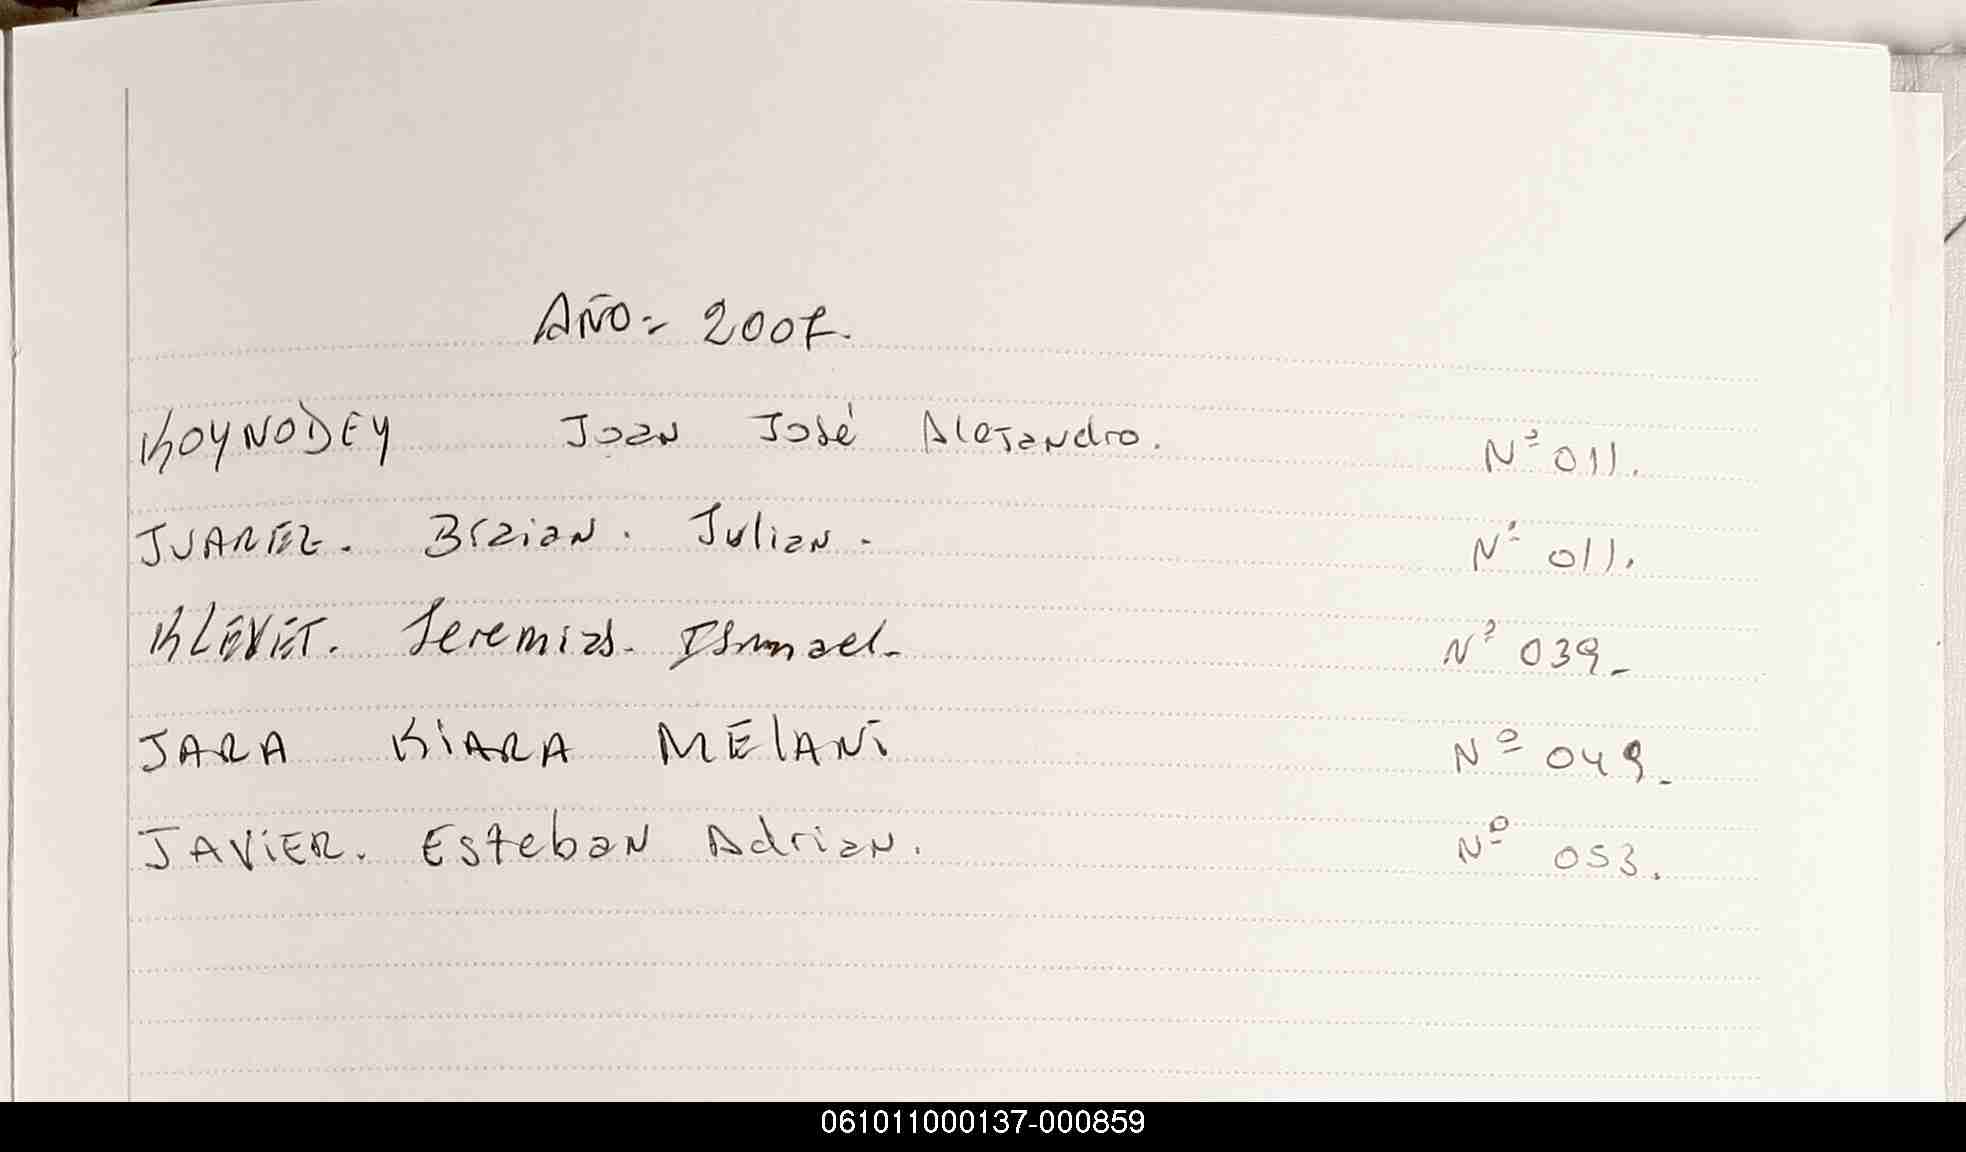 AÑO= 2007.
KOYNODEY Joan José Alejandro. Nº 011.
JUAREZ. Braian. Julian. Nº 011.
KLEVET. Jeremias. Ismael. Nº 039_
JARA KiARA MELANi Nº 049_
JAViER. Esteban Adrian. Nº 053.
061011000137-000859